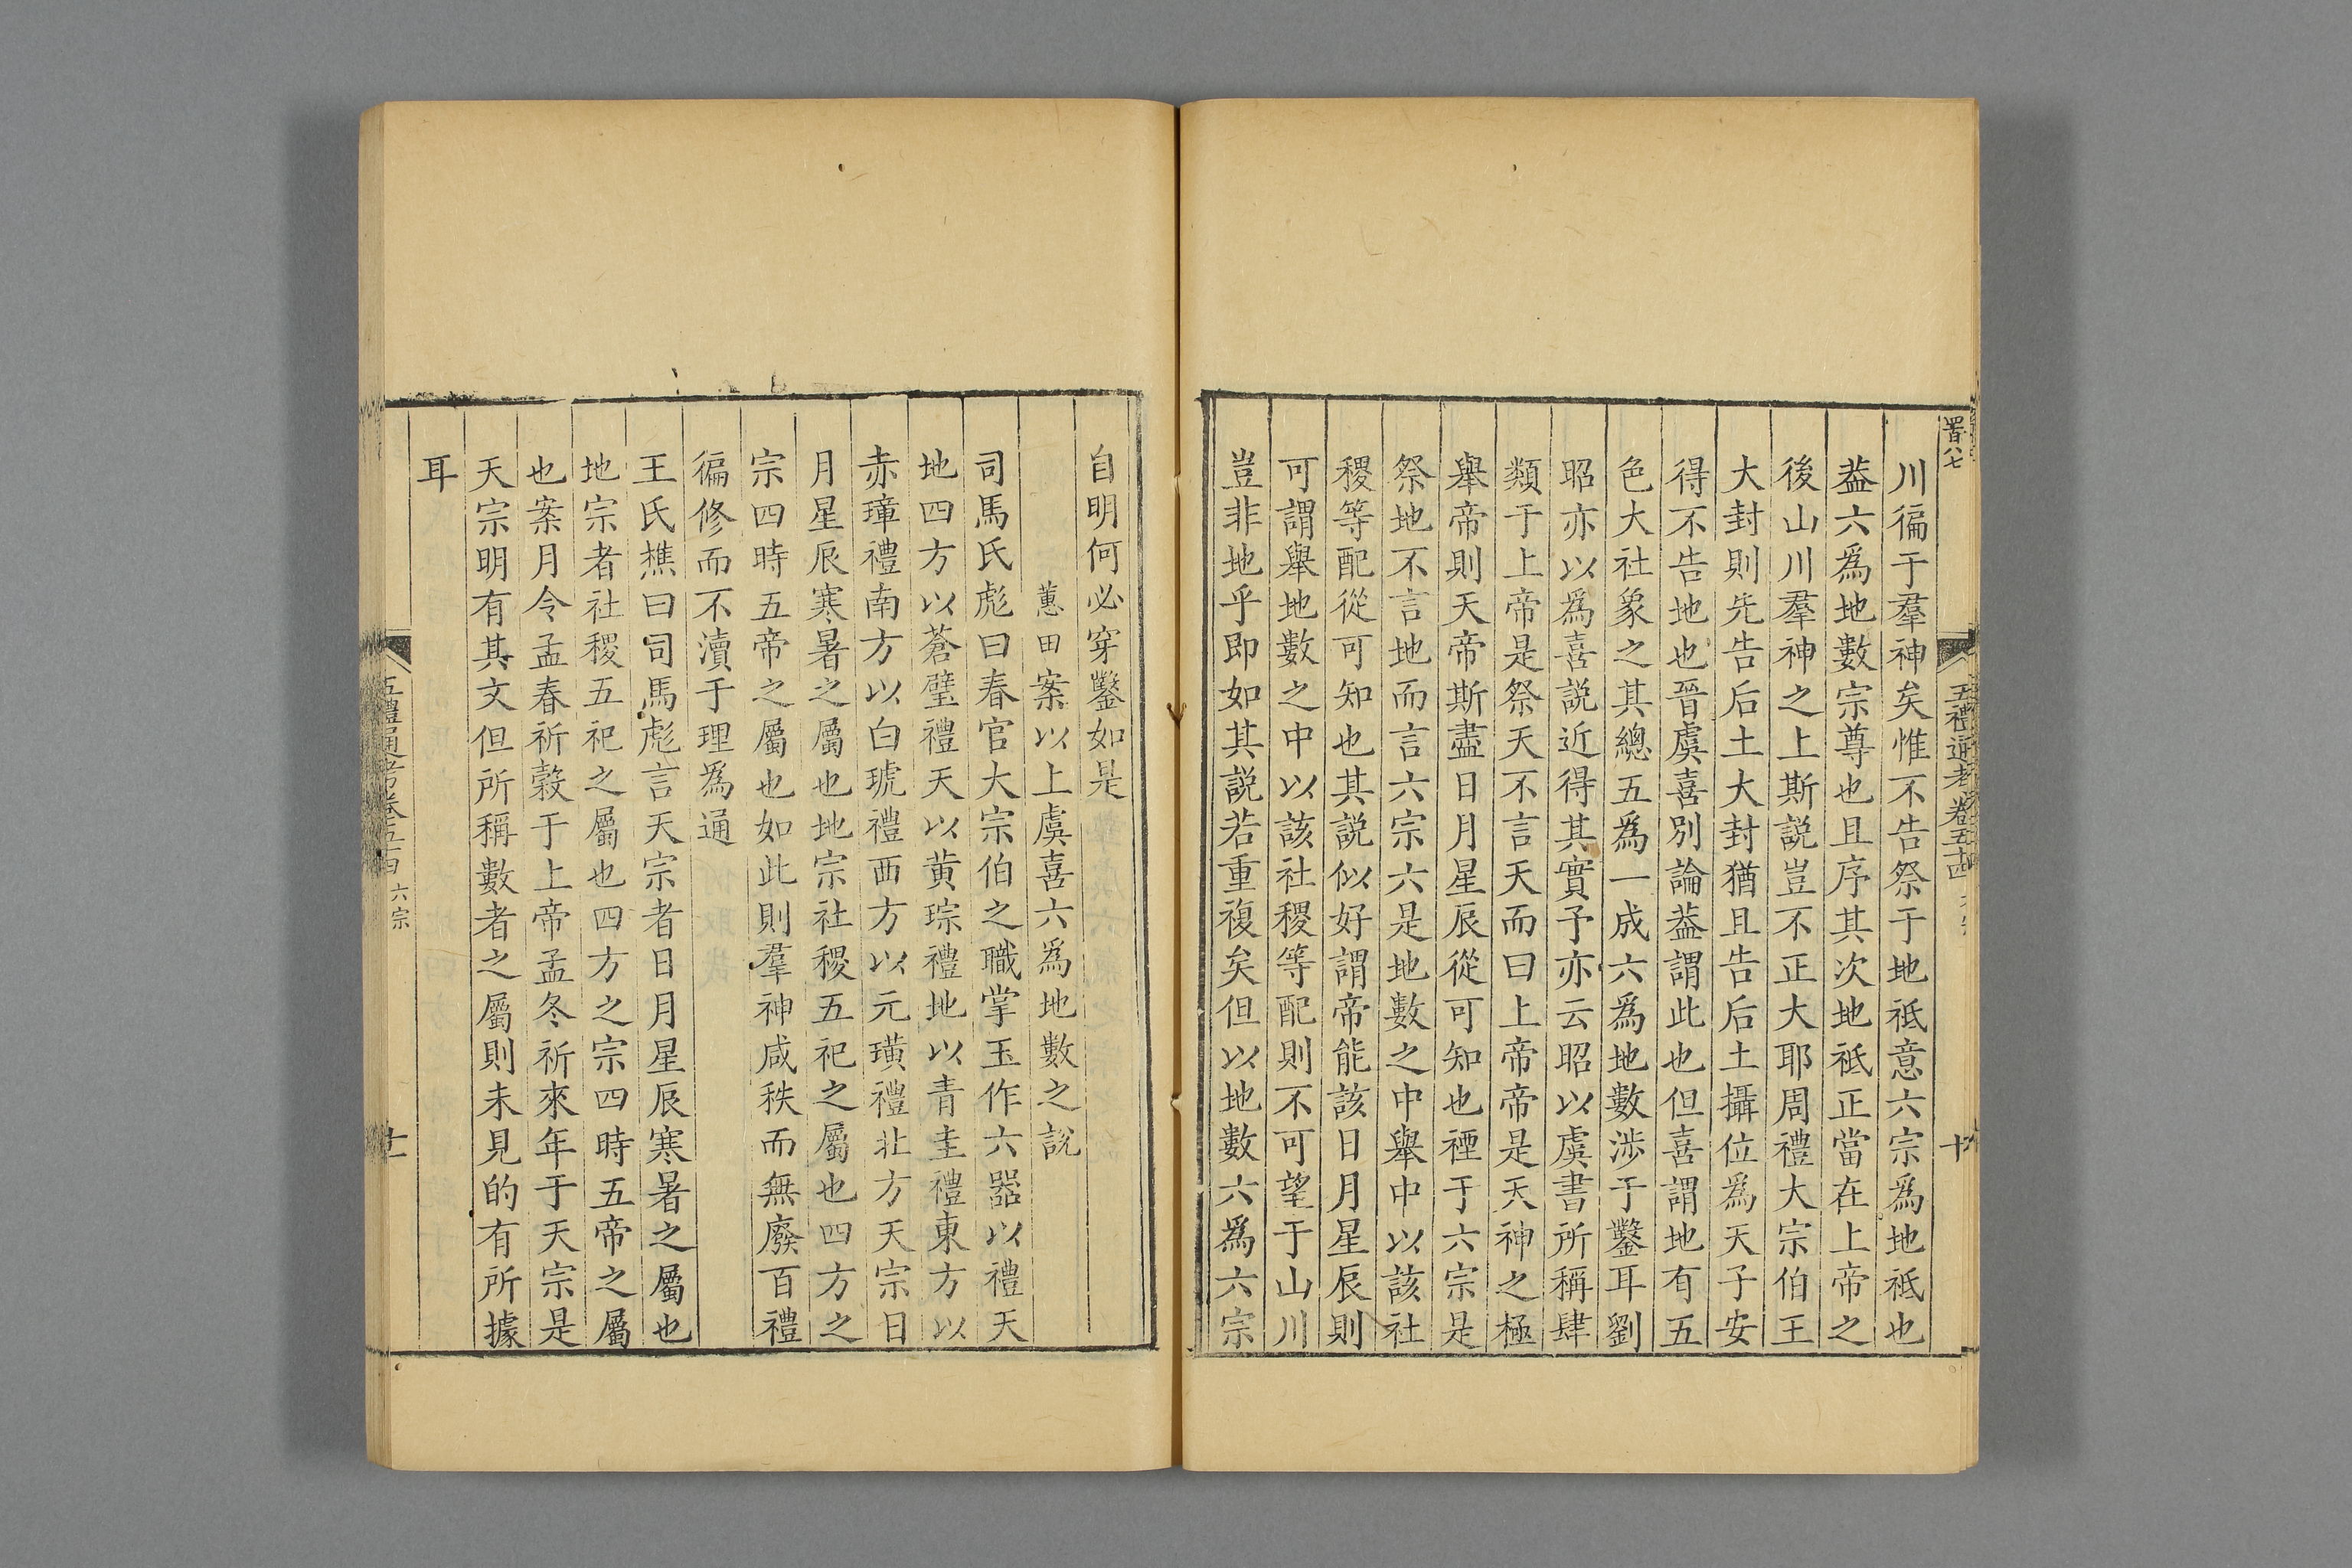 五禮通考卷五十四
十
川徧于羣神矣惟不告祭于地祇意六宗為地祇也
葢六為地數宗尊也且序其次地祇正當在上帝之
後山川羣神之上斯説豈不正大耶周禮大宗伯王
大封則先告后土大封猶且告后土攝位為天子安
得不告地也晉虞喜別論葢謂此也但喜謂地有五
色大社象之其總五為一成六為地數涉于鑿耳劉
昭亦以為喜説近得其實予亦云昭以虞書所稱肆
類于上帝是祭天不言天而曰上帝帝是天神之極
舉帝則天帝斯盡日月星辰從可知也禋于六宗是
祭地不言地而言六宗六是地數之中舉中以該社
稷等配從可知也其説似好謂帝能該日月星辰則
可謂舉地數之中以該社稷等配則不可望于山川
豈非地乎即如其説若重複矣但以地數六為六宗
自明何必穿鑿如是
蕙田案以上虞喜六為地數之説
司馬氏彪曰春官大宗伯之職掌玉作六器以禮天
地四方以蒼璧禮天以黄琮禮地以青圭禮東方以
赤璋禮南方以白琥禮西方以元璜禮北方天宗日
月星辰寒暑之屬也地宗社稷五祀之屬也四方之
宗四時五帝之屬也如此則羣神咸秩而無廢百禮
徧修而不瀆于理為通
王氏樵曰司馬彪言天宗者日月星辰寒暑之屬也
地宗者社稷五祀之屬也四方之宗四時五帝之屬
也案月令孟春祈榖于上帝孟冬祈來年于天宗是
天宗明有其文但所稱數者之屬則未見的有所據
耳
五禮通考卷五十四 六宗
十一